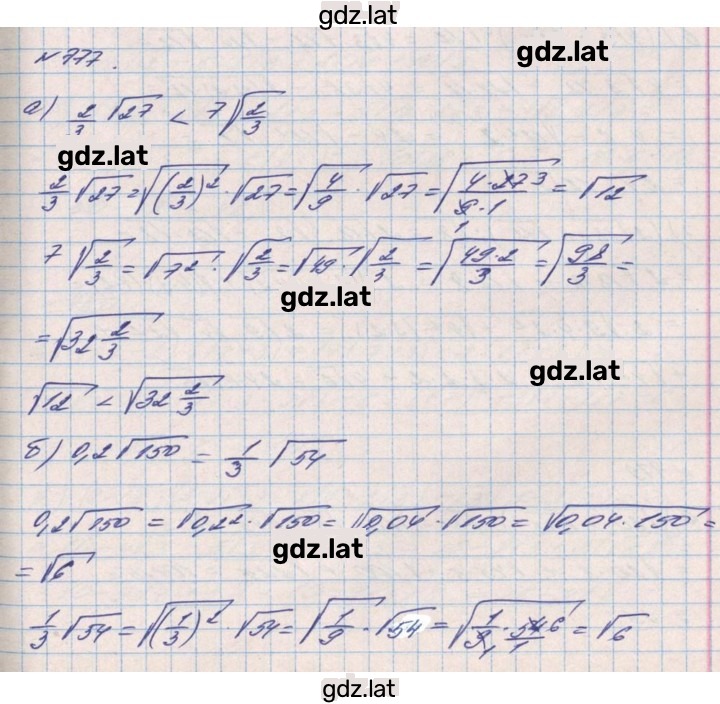 gdz.lat
№ 777.
gdz.lat
а) 2/3 √27 < 7√(2/3)
gdz.lat
2/3 √27 = √((2/3)²) · √27 = √(4/9) · √27 = √((4·27 3)/(9·1 1)) = √12
7√(2/3) = √(7²) · √(2/3) = √49 · √(2/3) = √((49·2)/3) = √(98/3) =
gdz.lat
= √(32 2/3)
gdz.lat
√12 < √(32 2/3)
б) 0,2√150 = 1/3 √54
0,2√150 = √(0,2²) · √150 = √0,04 · √150 = √(0,04 · 150) =
gdz.lat
= √6
1/3 · √54 = √((1/3)²) · √54 = √(1/9) · √54 = √((1 · 54 6)/(9 1 · 1)) = √6
gdz.lat